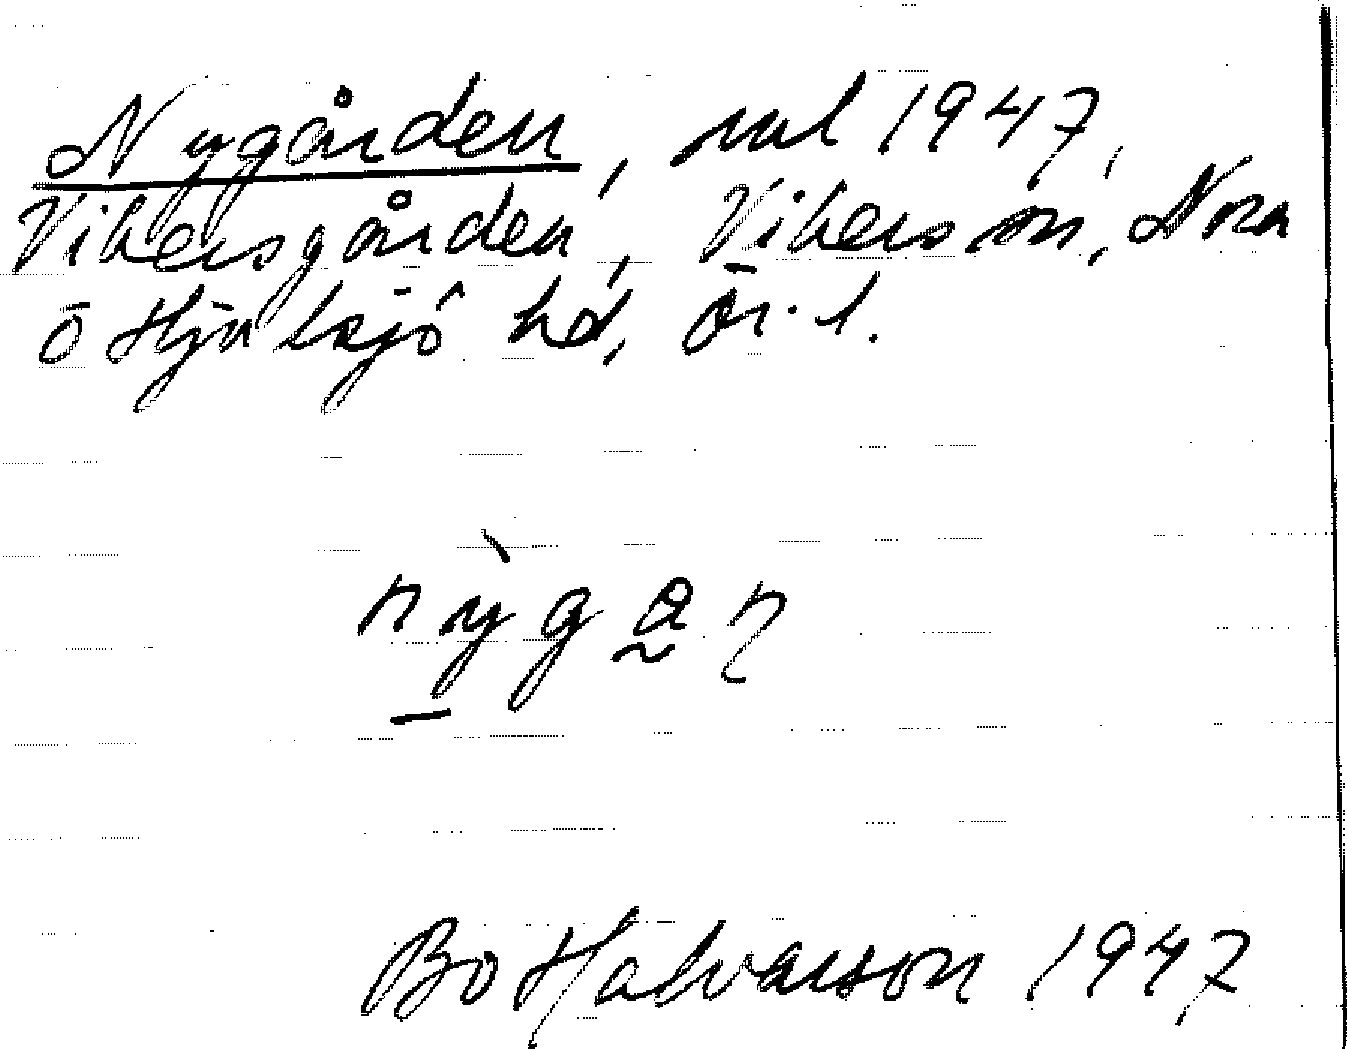 Nygården, nul 1947,
Vikersgården, Vikers sn, Nora
o Hjulsjö hd, Ör. l.
nỳgan
Bo Halvarson 1947